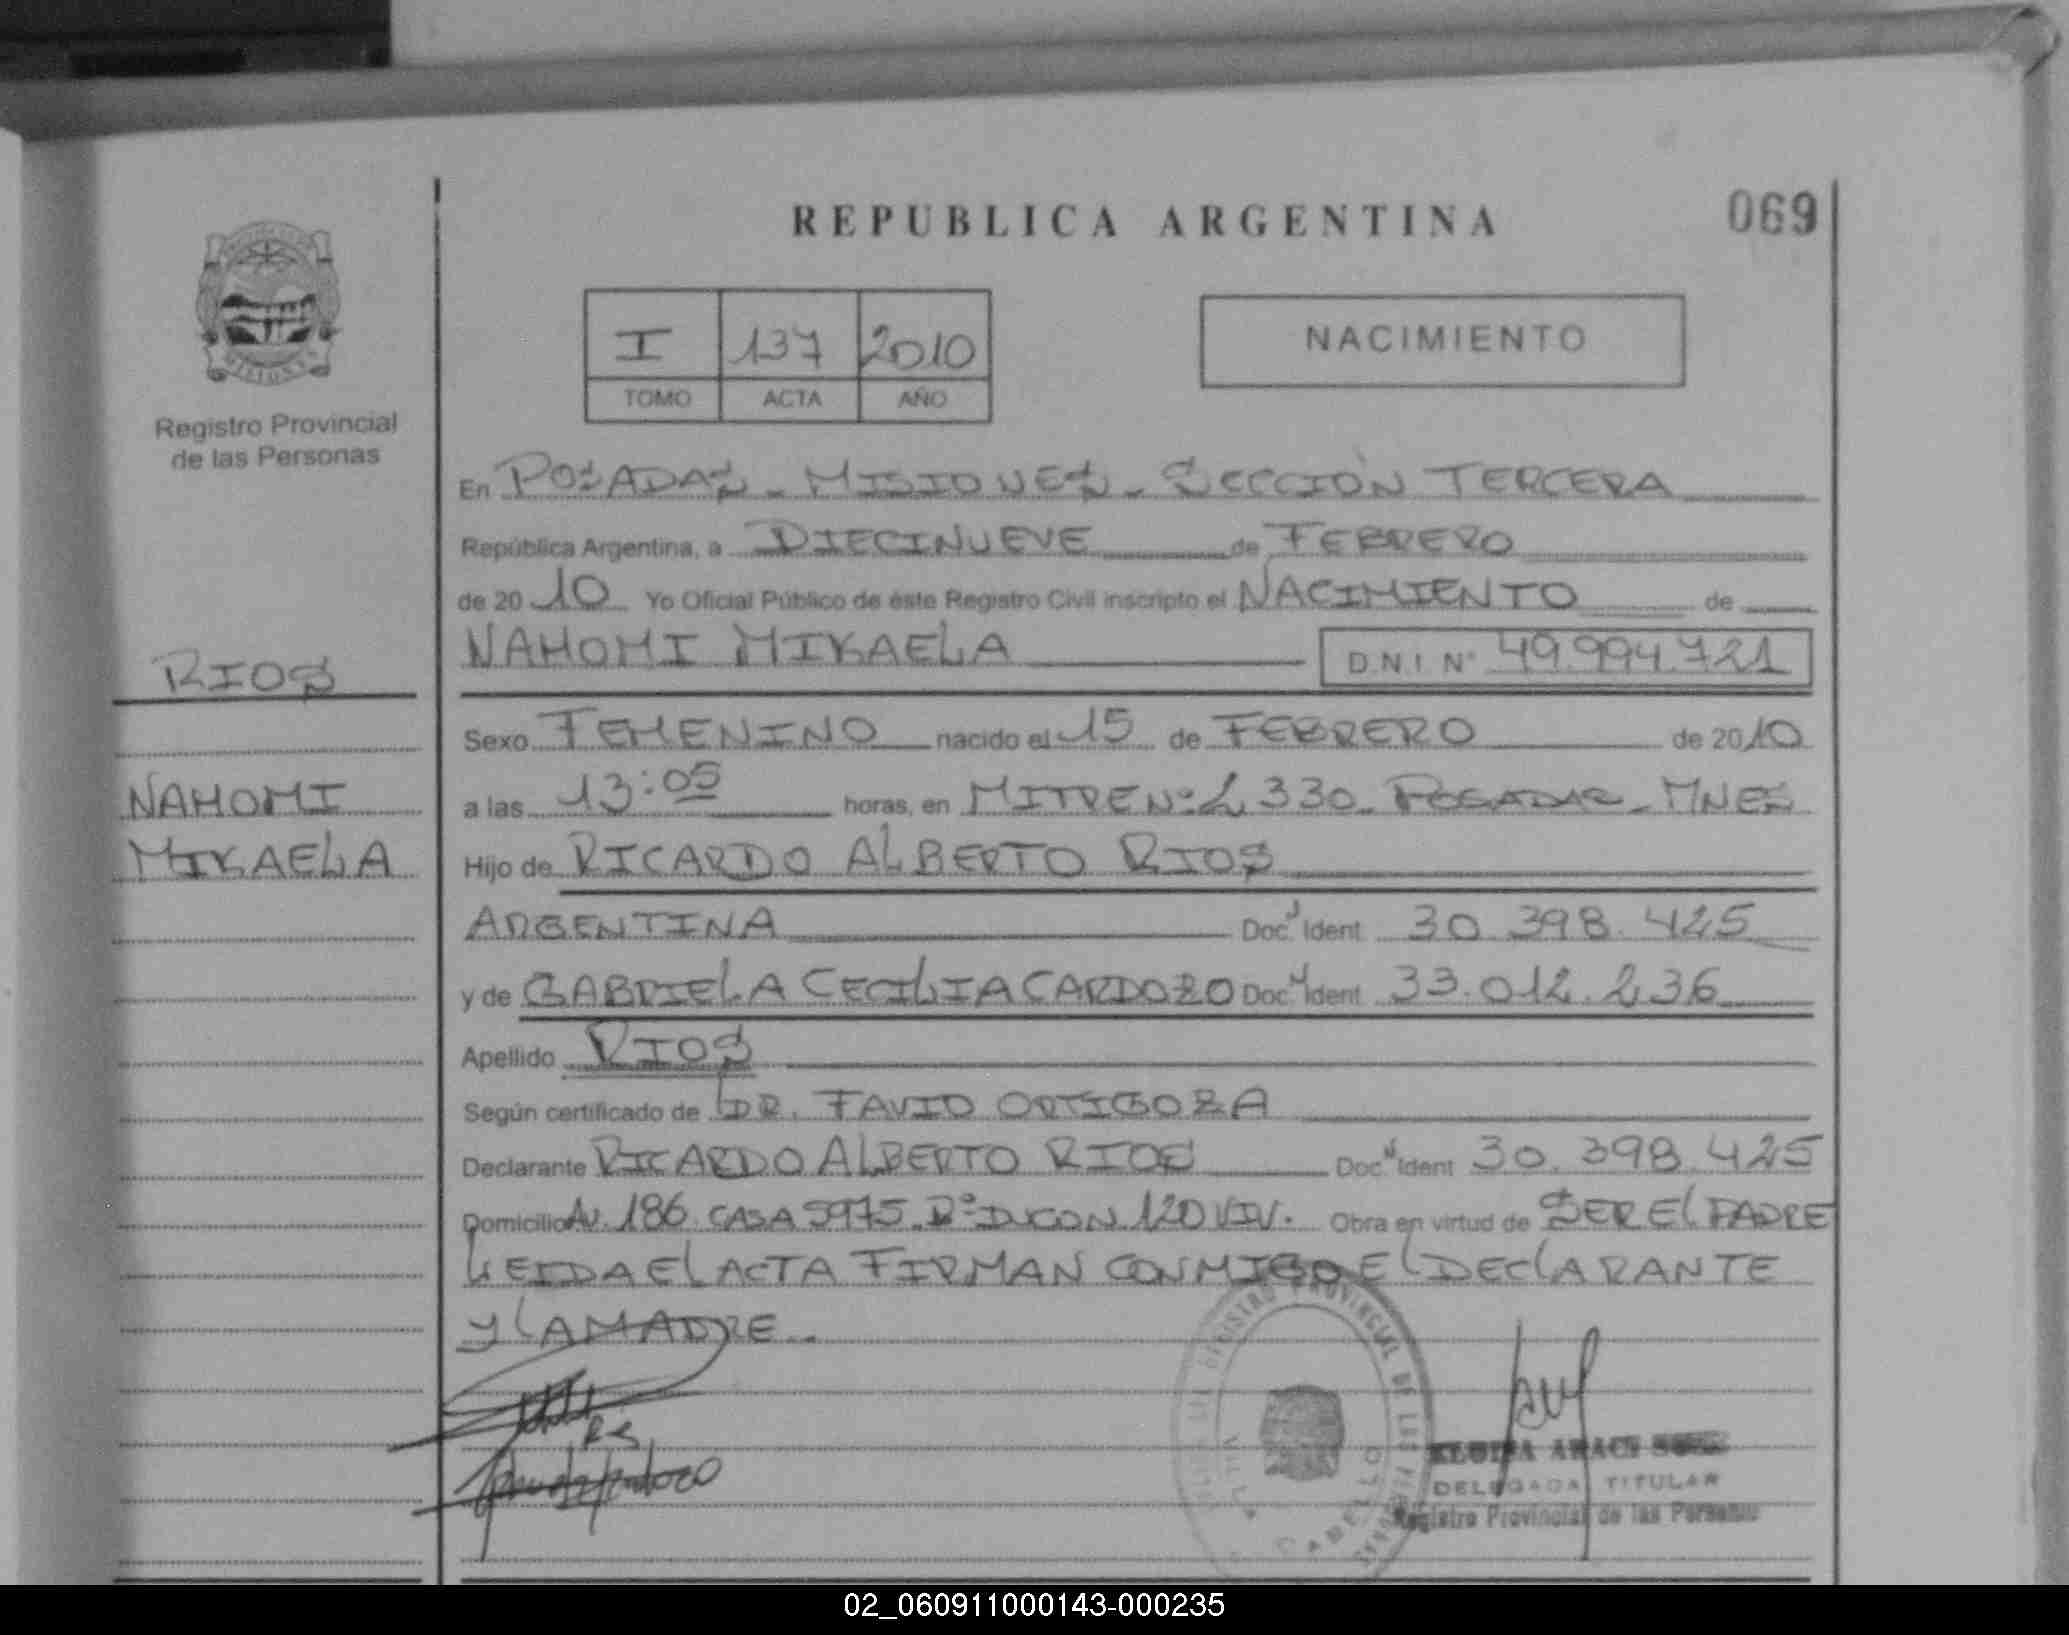 REPUBLICA ARGENTINA
069
I 137 2010
TOMO ACTA AÑO
NACIMIENTO
MISIONES
Registro Provincial
de las Personas
En POSADAS - MISIONES - SECCIÓN TERCERA
República Argentina, a DIECINUEVE de FEBRERO
de 2010 Yo Oficial Público de éste Registro Civil inscripto el NACIMIENTO de
NAHOMI MIKAELA D.N.I. Nº 49.994.721
RIOS
Sexo FEMENINO nacido el 15 de FEBRERO de 2010
NAHOMI
a las 13:05 horas, en MITRE Nº 2330 - POSADAS - MNES
MIKAELA
Hijo de RICARDO ALBERTO RIOS
ARGENTINA Doc. Ident 30.398.425
y de GABRIELA CECILIA CARDOZO Doc. Ident 33.012.236
Apellido RIOS
Según certificado de DR. FAVIO ORTIGOZA
Declarante RICARDO ALBERTO RIOS Doc. Ident 30.398.425
Domicilio AV. 186 CASA 5975 Bº 120 VIV. Obra en virtud de SER EL PADRE
LEIDA EL ACTA FIRMAN CONMIGO EL DECLARANTE
Y LA MADRE.
REGISTRO PROVINCIAL DE LAS PERSONAS
VILLA CABELLO
DELEGADA TITULAR
Registro Provincial de las Personas
02_060911000143-000235